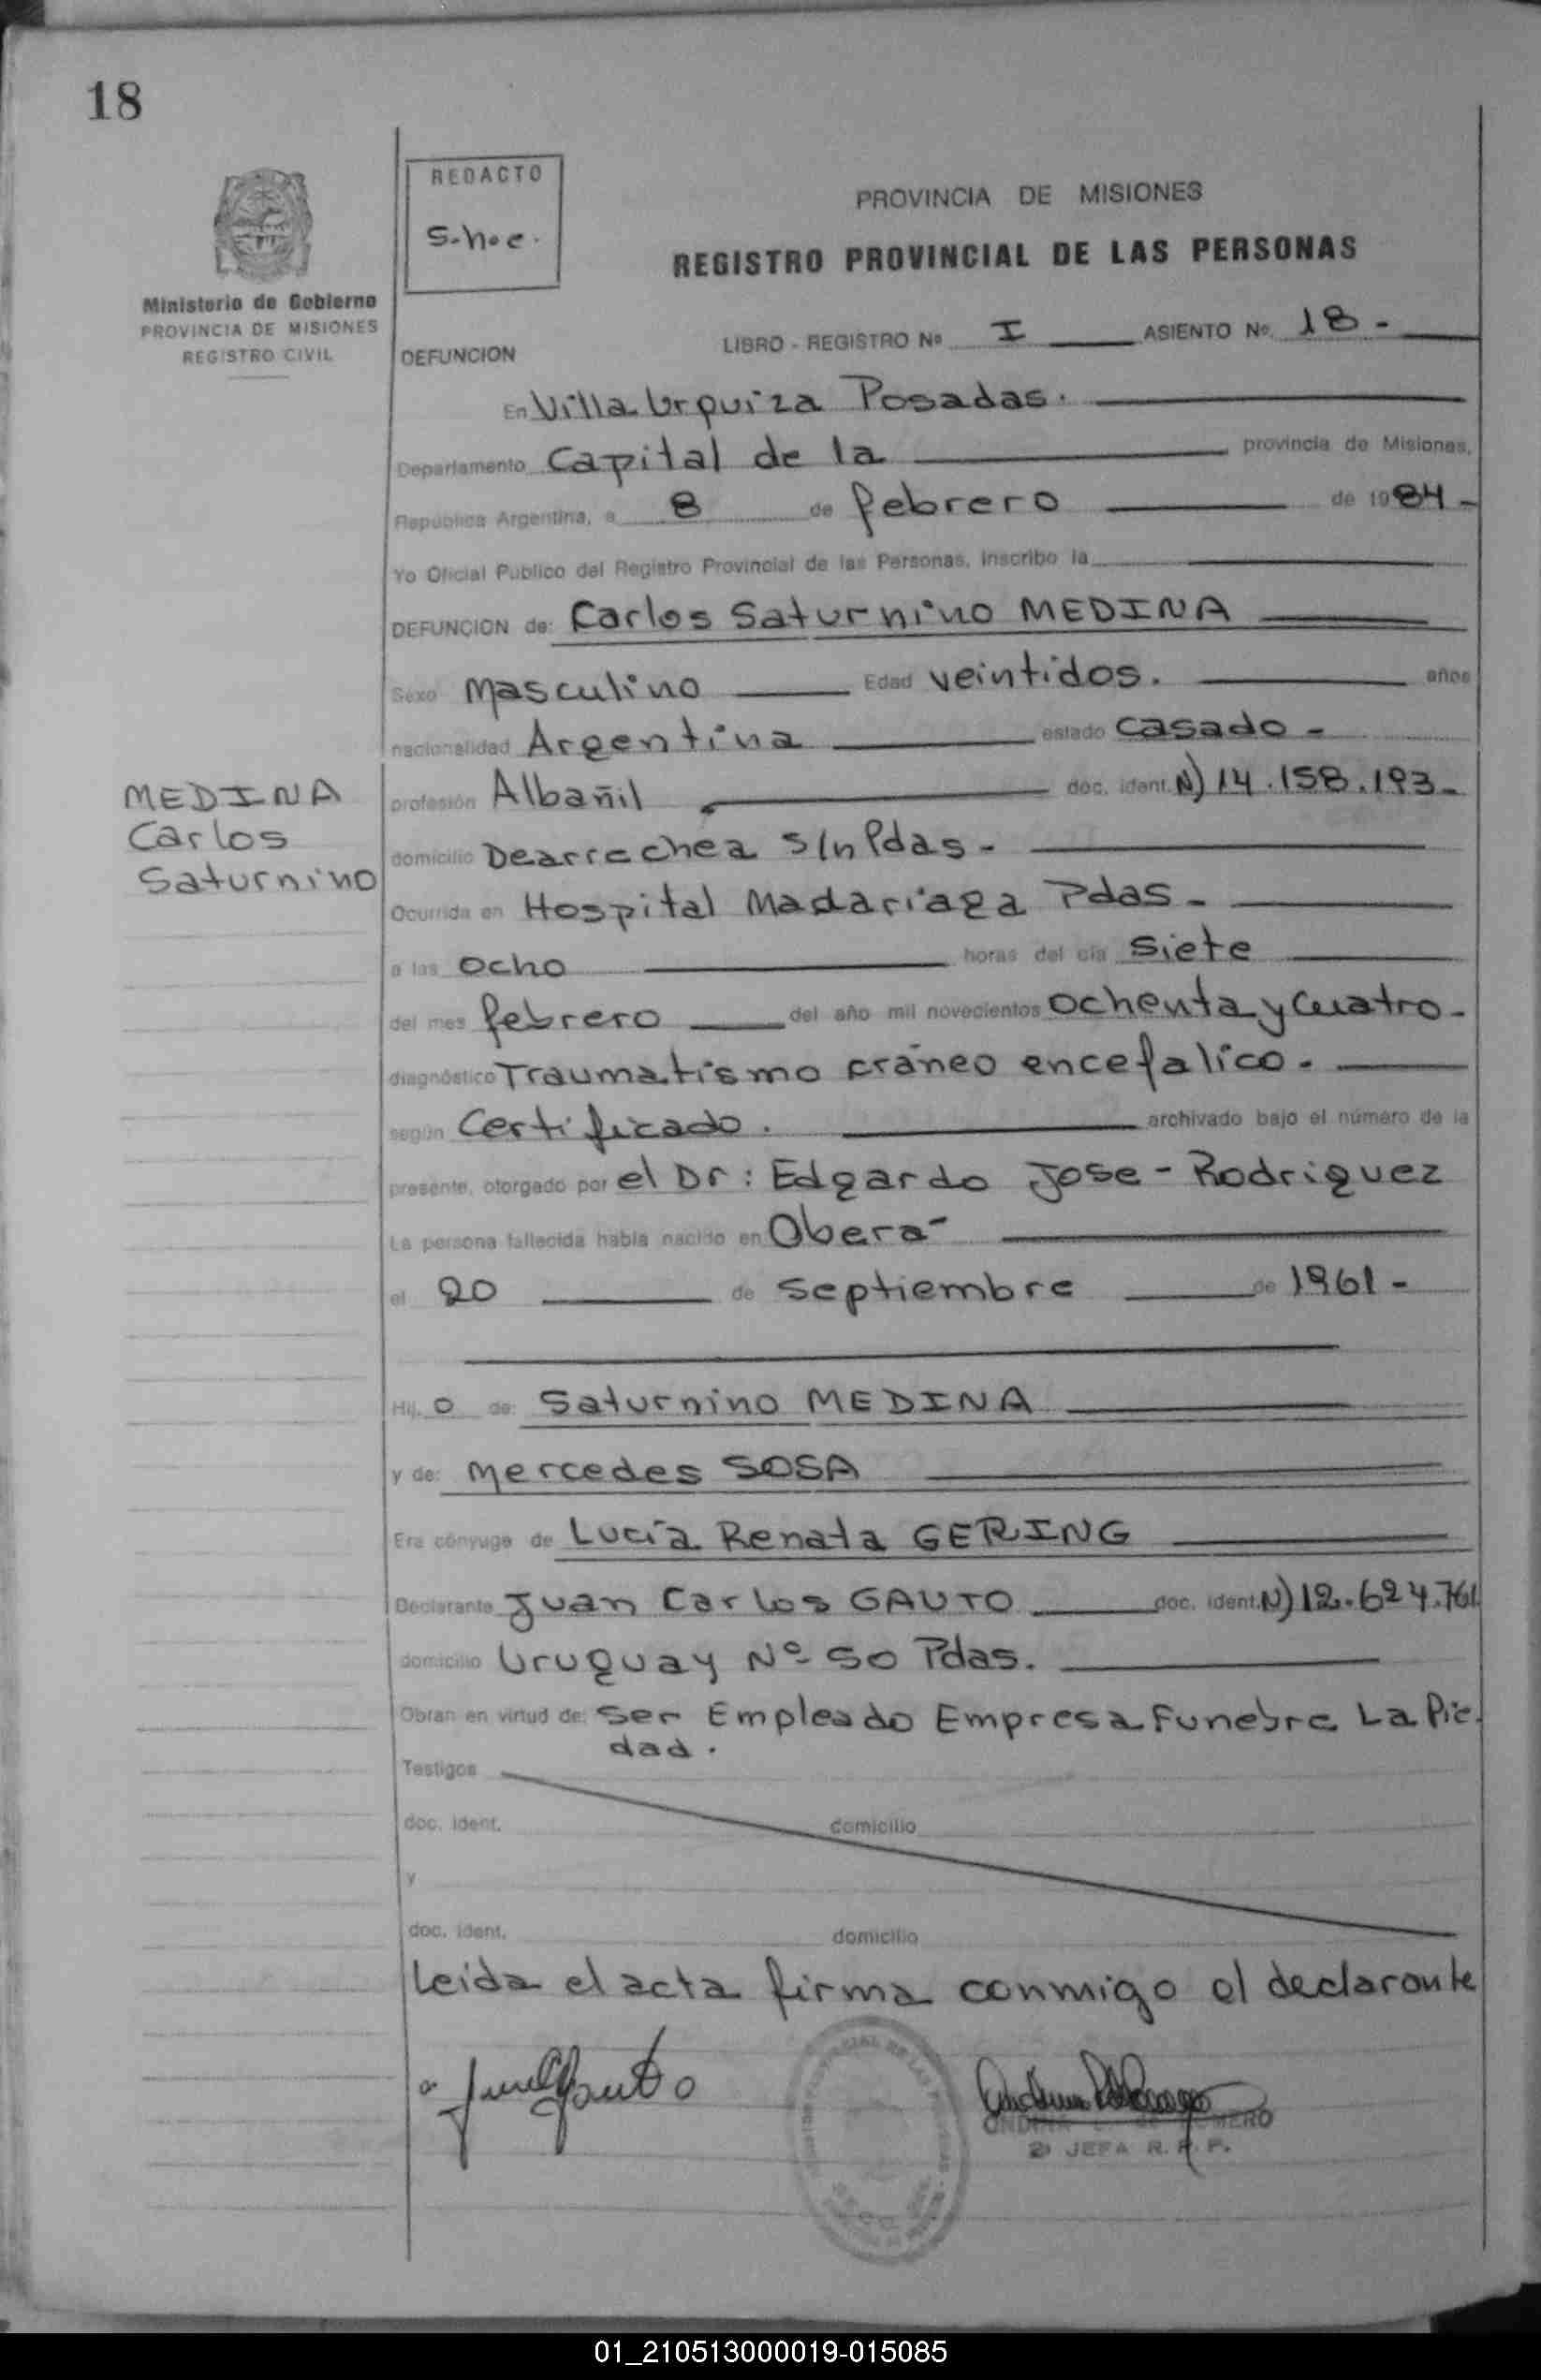 18
REDACTO
S.h.c.
Ministerio de Gobierno
PROVINCIA DE MISIONES
REGISTRO CIVIL
PROVINCIA DE MISIONES
REGISTRO PROVINCIAL DE LAS PERSONAS
DEFUNCION LIBRO - REGISTRO Nº I ASIENTO Nº 18 -
En Villa Urquiza Posadas.
Departamento Capital de la provincia de Misiones,
República Argentina, a 8 de febrero de 1984 -
Yo Oficial Público del Registro Provincial de las Personas, inscribo la
DEFUNCION de: Carlos Saturnino MEDINA
Sexo Masculino Edad veintidos. años
nacionalidad Argentina estado casado -
MEDINA
Carlos
Saturnino
profesión Albañil doc. ident. N) 14.158.193 -
domicilio Dearrechea s/n Pdas -
Ocurrida en Hospital Madariaga Pdas -
a las ocho horas del día siete
del mes febrero del año mil novecientos ochenta y cuatro -
diagnóstico Traumatismo cráneo encefalico -
según Certificado. archivado bajo el número de la
presente, otorgado por el Dr: Edgardo Jose - Rodriguez
La persona fallecida había nacido en Obera -
el 20 de septiembre de 1961 -
Hij o de: Saturnino MEDINA
y de: Mercedes SOSA
Era cónyuge de Lucía Renata GERING
Declarante Juan Carlos GAUTO doc. ident. N) 12.624.761
domicilio Uruguay Nº 50 Pdas.
Obran en virtud de: ser Empleado Empresa Funebre La Pie
dad.
Testigos
doc. ident. domicilio
y
doc. ident. domicilio
Leida el acta firma conmigo el declarante
JEFA R. P. P.
01_210513000019-015085